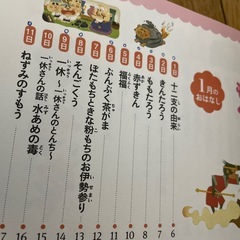 1月のおはなし
1日 十二支の由来 6
2日 きんたろう 7
3日 ももたろう 8
4日 赤ずきん 9
5日 福福 10
6日 ぶんぶく茶がま 11
7日 ぼたもちときな粉もちのお伊勢参り 12
8日 そんごくう 13
9日 一休さんのとんち〜一休 14
10日 一休さんの話 水あめの毒 15
11日 ねずみのすもう 16
17